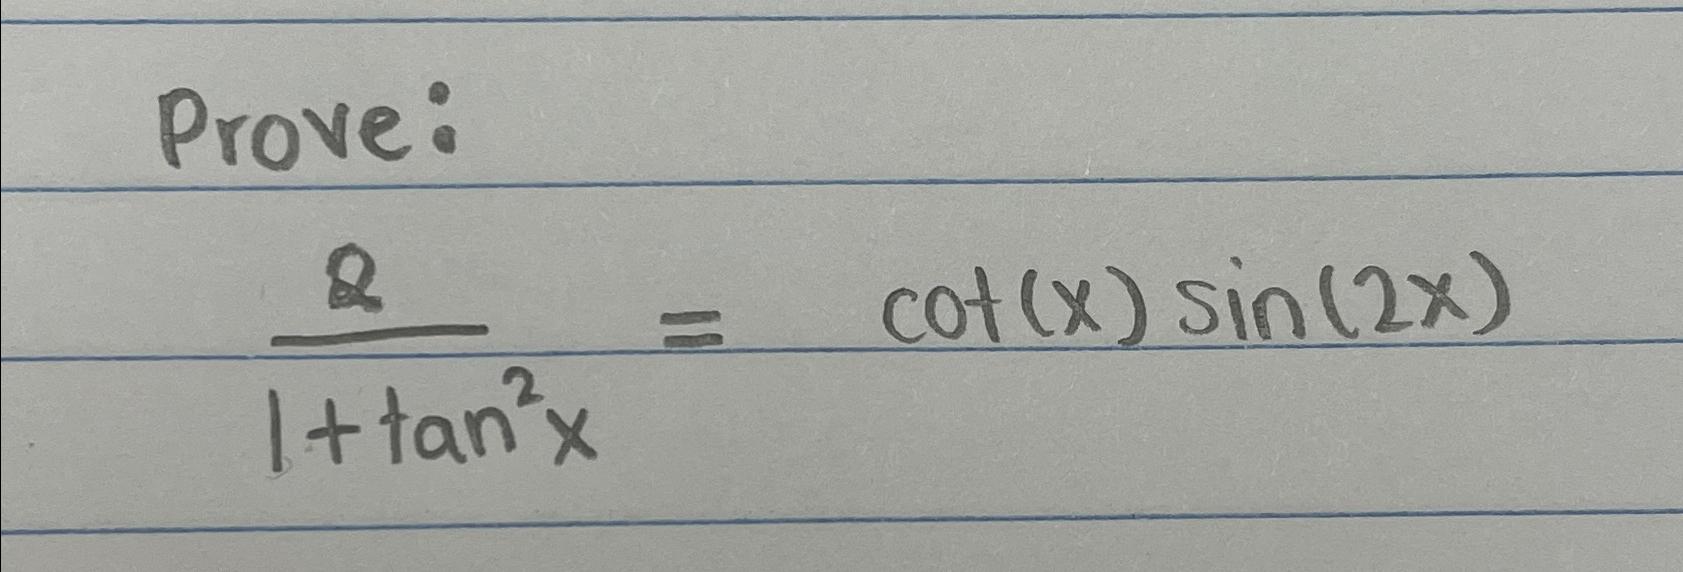 Prove:
2/(1+tan²x) = cot(x) sin(2x)